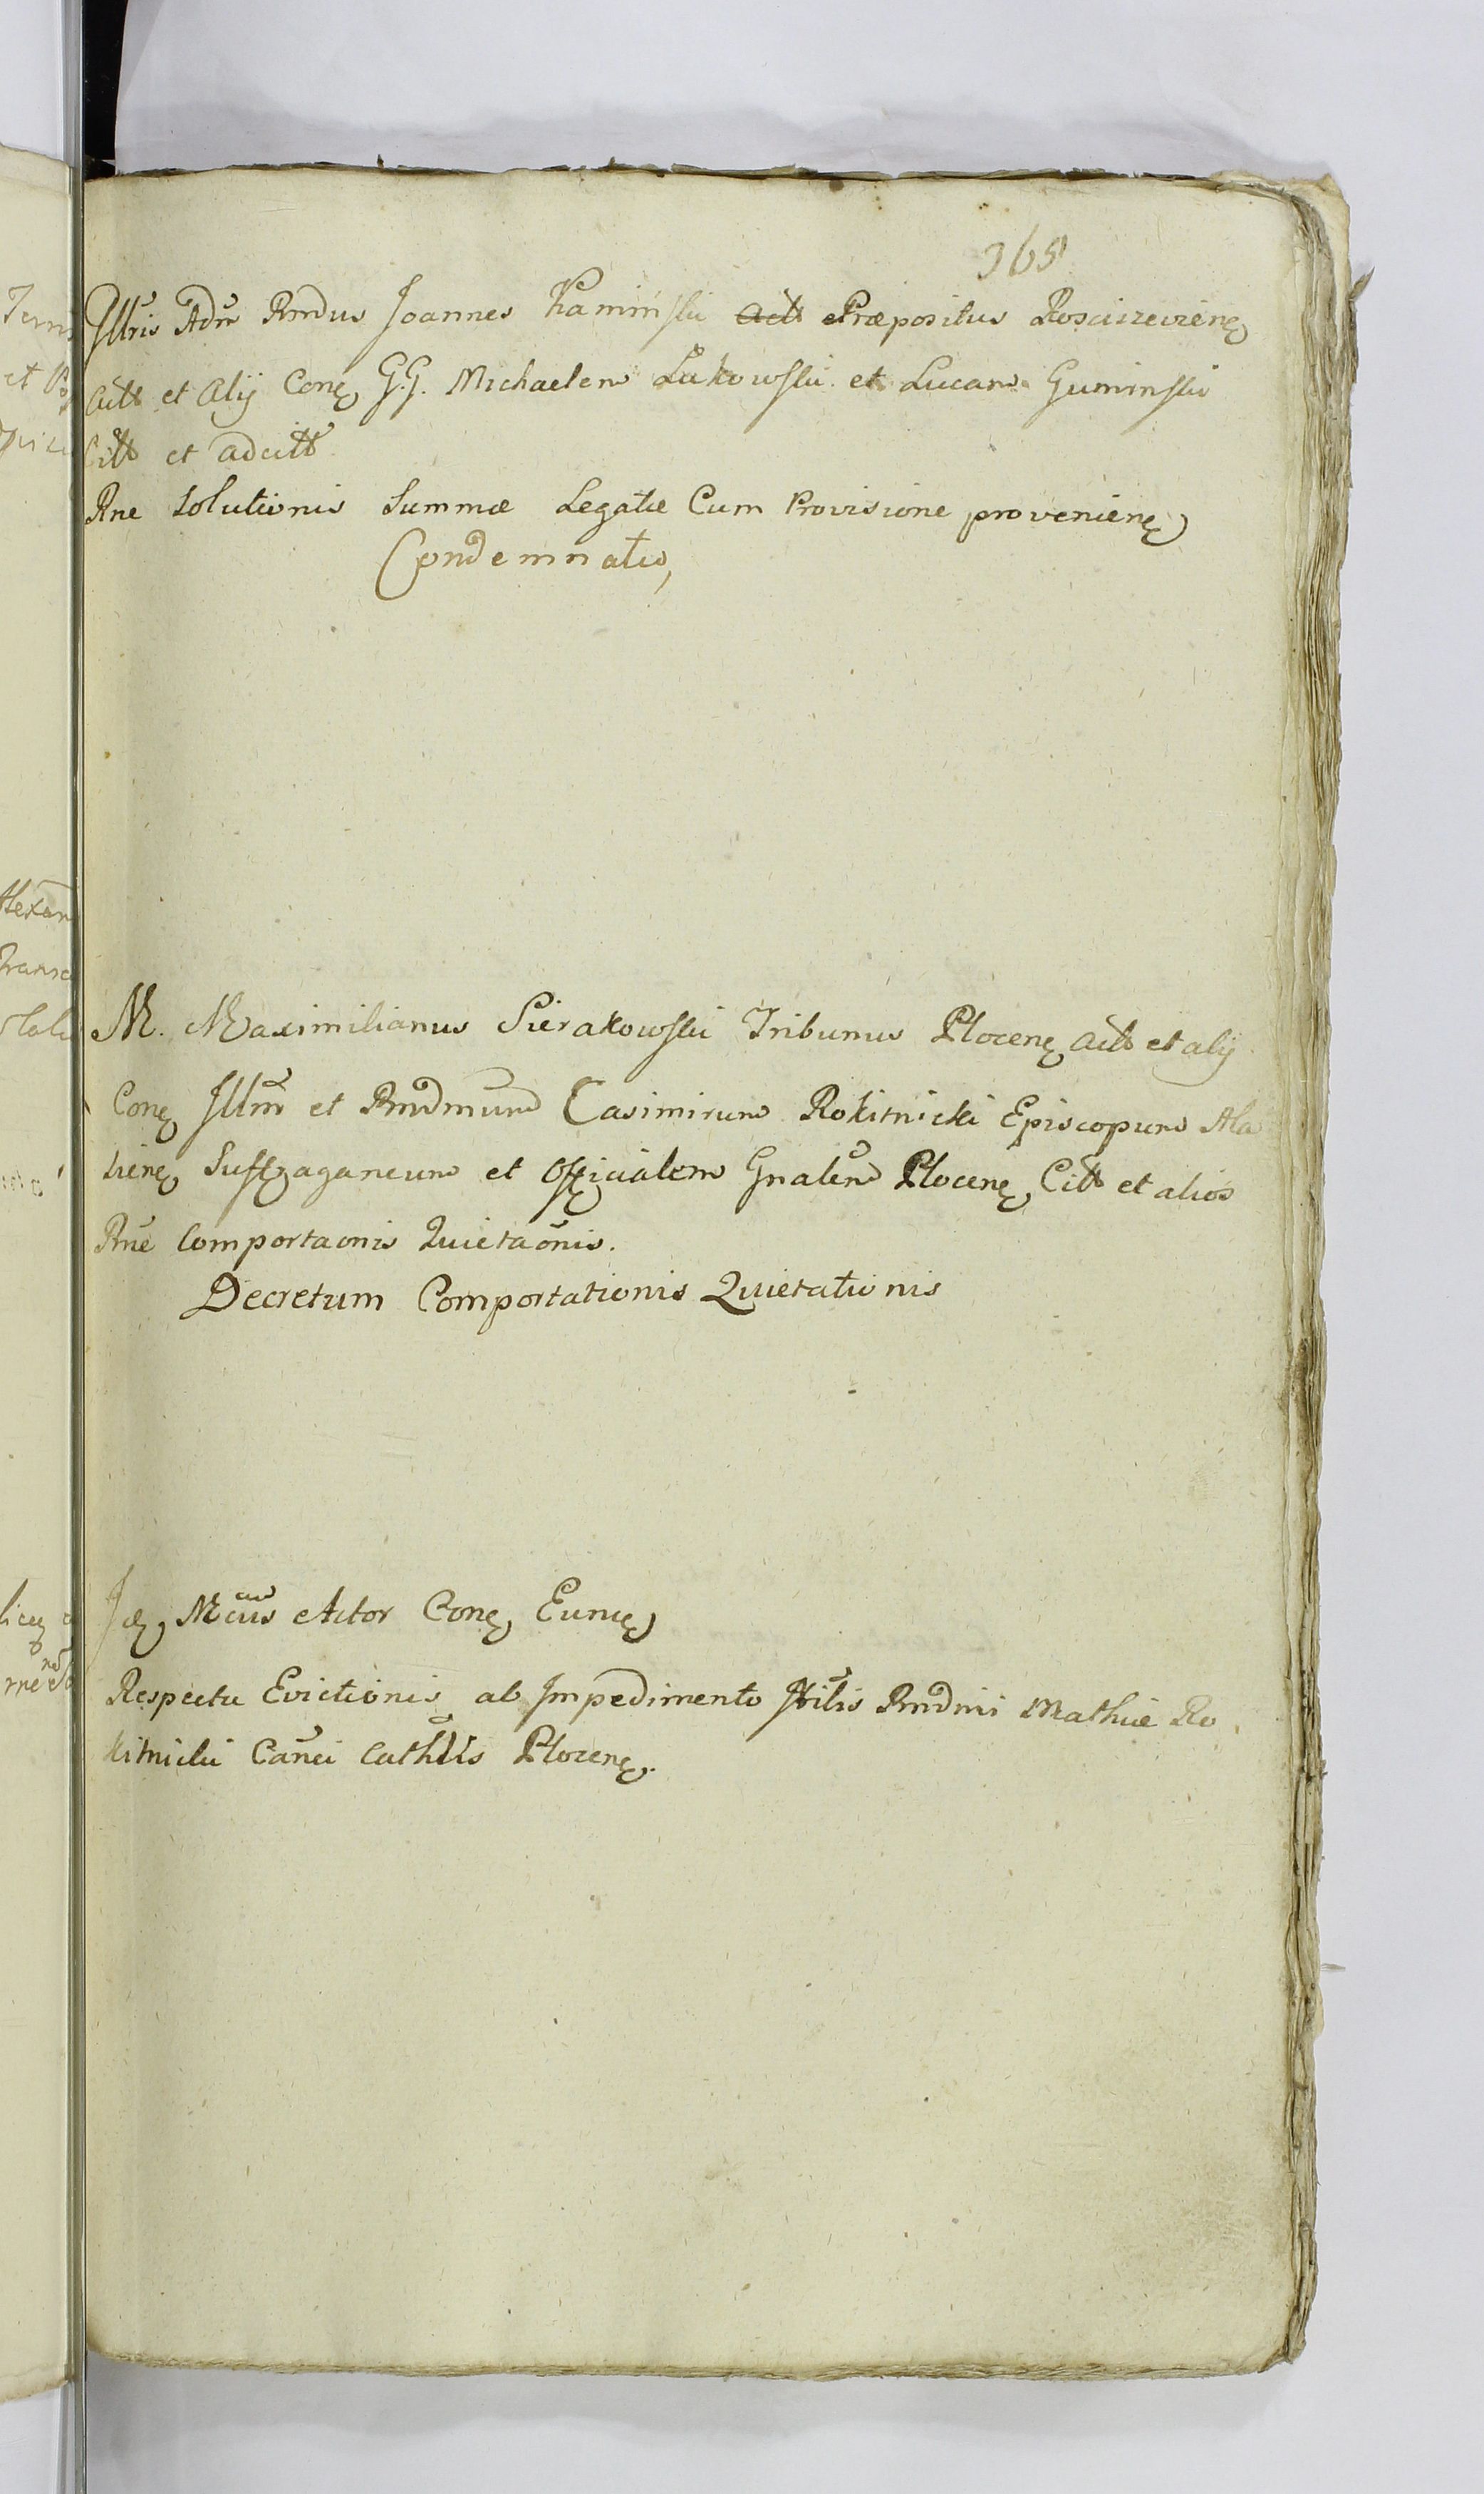 365
Illris Adm Rndus Joannes Kaminski Act Præpositus Rosciszeviens
Act et Alij Cons G.G. Michaelem Łukowski et Lucam Guminski
Citt et adcitt
Rne Solutionis Summæ Legatæ Cum Provisione proveniens
Condemnatio,
M. Maximilianus Sierakowski Tribunus Plocens Act et alij
Cons Illm et Rndmum Casimirum Rokitnicki Episcopum Ala
liens Suffraganeum et Officialem Gnalem Plocens Citt et alios
Rne Comportaonis Quietaonis.
Decretum Comportationis Quietationis
Id, Mcus Actor Cons Eund
Respectu Evictionis ab Impedimento Rndmi Mathiæ Ro
kitnicki Canci Cathlis Plocens.